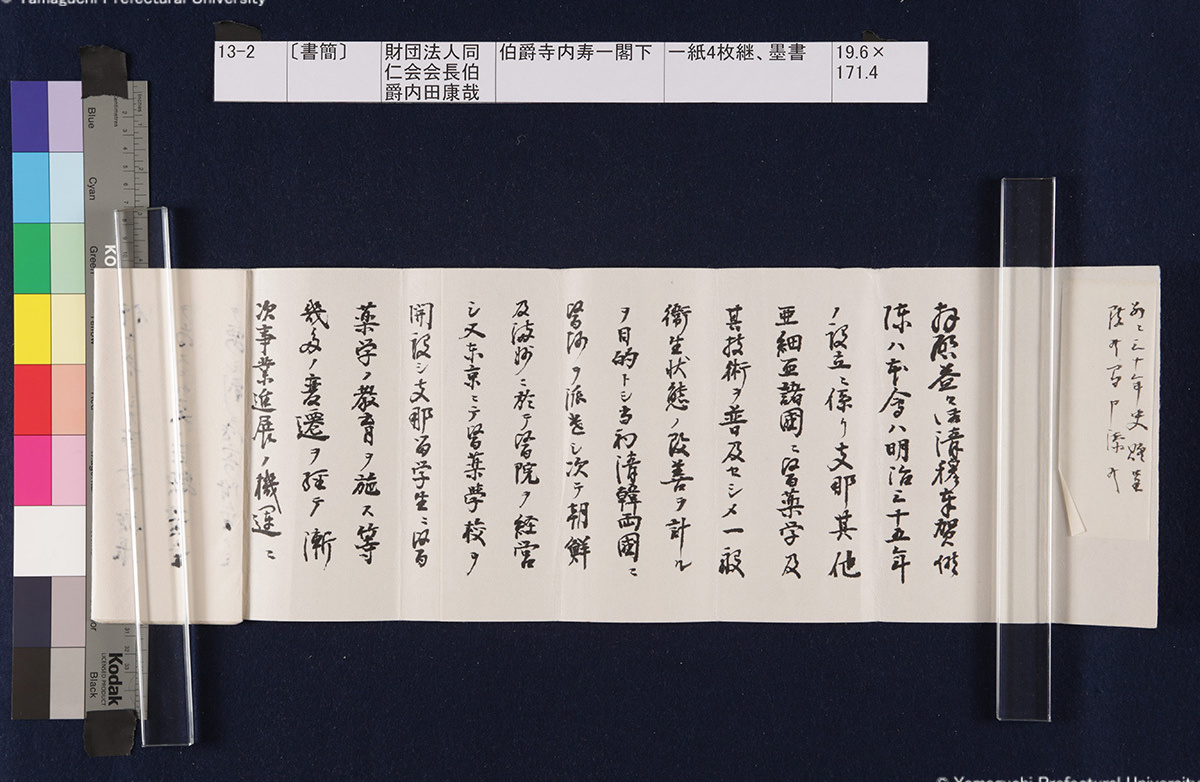 © Yamaguchi Prefectural University
13-2
〔書簡〕
財団法人同
仁会会長伯
爵内田康哉
伯爵寺内寿一閣下
一紙4枚継、墨書
19.6×
171.4
拝啓益々御清穆奉賀候
陳ハ本會ハ明治三十五年
ノ設立ニ係リ支那其他
亜細亜諸國ニ醫薬学及
其技術ヲ普及セシメ一般
衛生状態ノ改善ヲ計ル
ヲ目的トシ当初清韓両國ニ
醫師ヲ派遣シ次テ朝鮮
及満州ニ於テ醫院ヲ経営
シ又東京ニテ醫薬學校ヲ
開設シ支那留学生ニ醫
薬学ノ教育ヲ施ス等
幾多ノ変遷ヲ経テ漸
次事業進展ノ機運ニ
Blue
Cyan
Green
Yellow
Red
Magenta
Color
Black
Inches
Centimetres
Kodak
LICENSED PRODUCT
© Yamaguchi Prefectural University